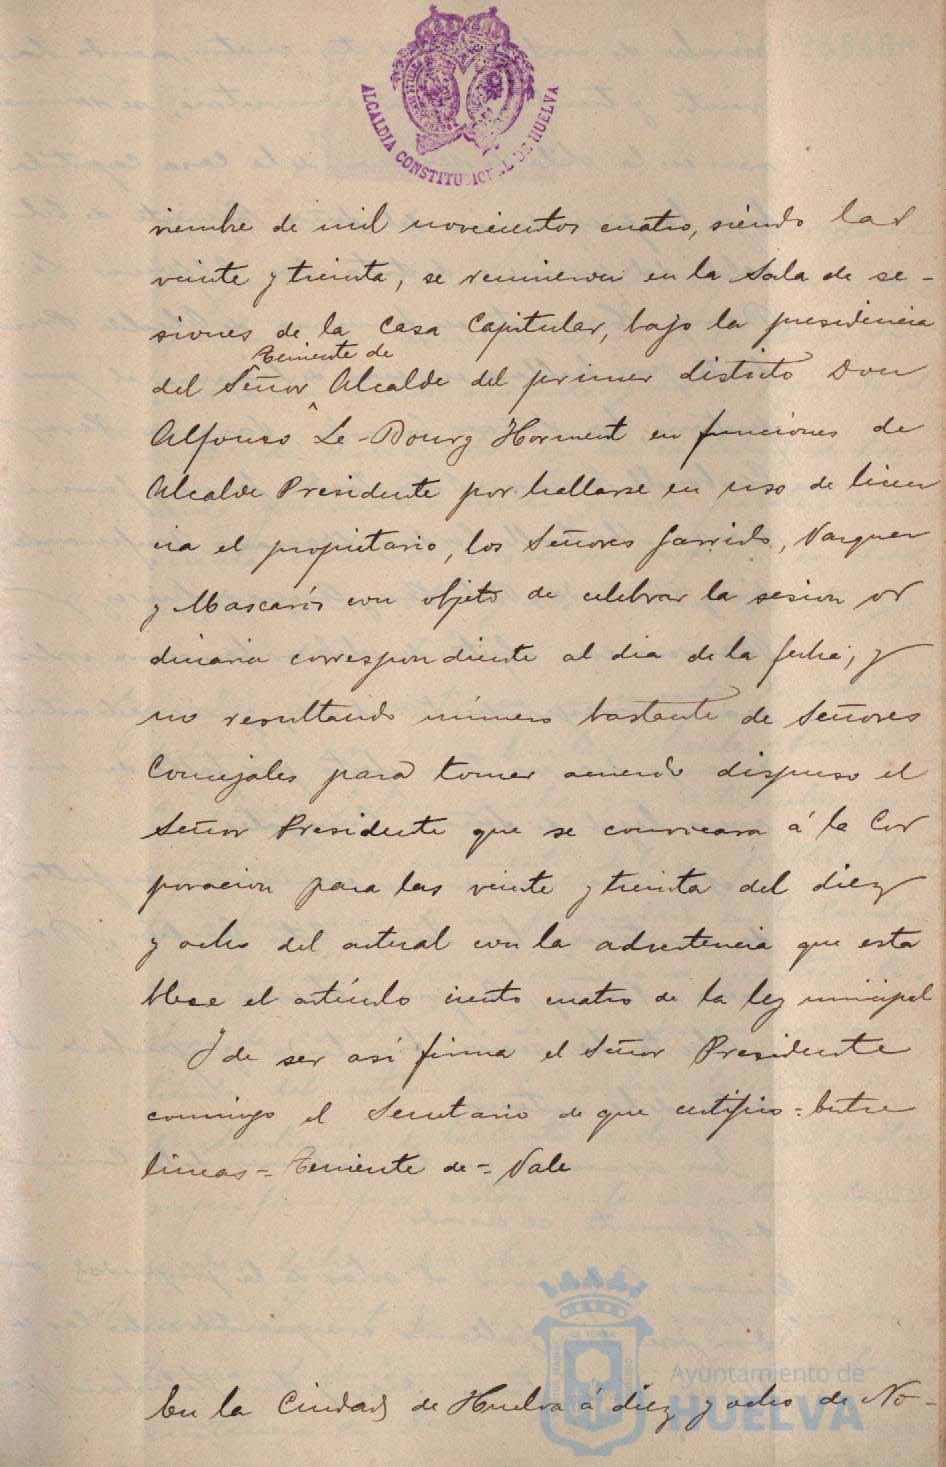 ALCALDIA CONSTITUCIONAL DE HUELVA
viembre de mil novecientos cuatro, siendo las
veinte y treinta, se reunieron en la Sala de se-
siones de la Casa Capitular, bajo la presidencia
Teniente de
del Señor Alcalde del primer distrito Don
Alfonso Le-Bourg Horment en funciones de
Alcalde Presidente por hallarse en uso de licen
cia el propietario, los Señores Garrido, Vazquez
y Mascarós con objeto de celebrar la sesion or
dinaria correspondiente al dia de la fecha, y
no resultando número bastante de Señores
Concejales para tomar acuerdo dispuso el
Señor Presidente que se convocara á la Cor
poracion para las veinte y treinta del diez
y ocho del actual con la advertencia que esta
blece el artículo ciento cuatro de la ley municipal
Y de ser asi firma el Señor Presidente
conmigo el Secretario de que certifico = Entre
lineas = Teniente de = Vale
En la Ciudad de Huelva á diez y ocho de No-
Ayuntamiento de
HUELVA